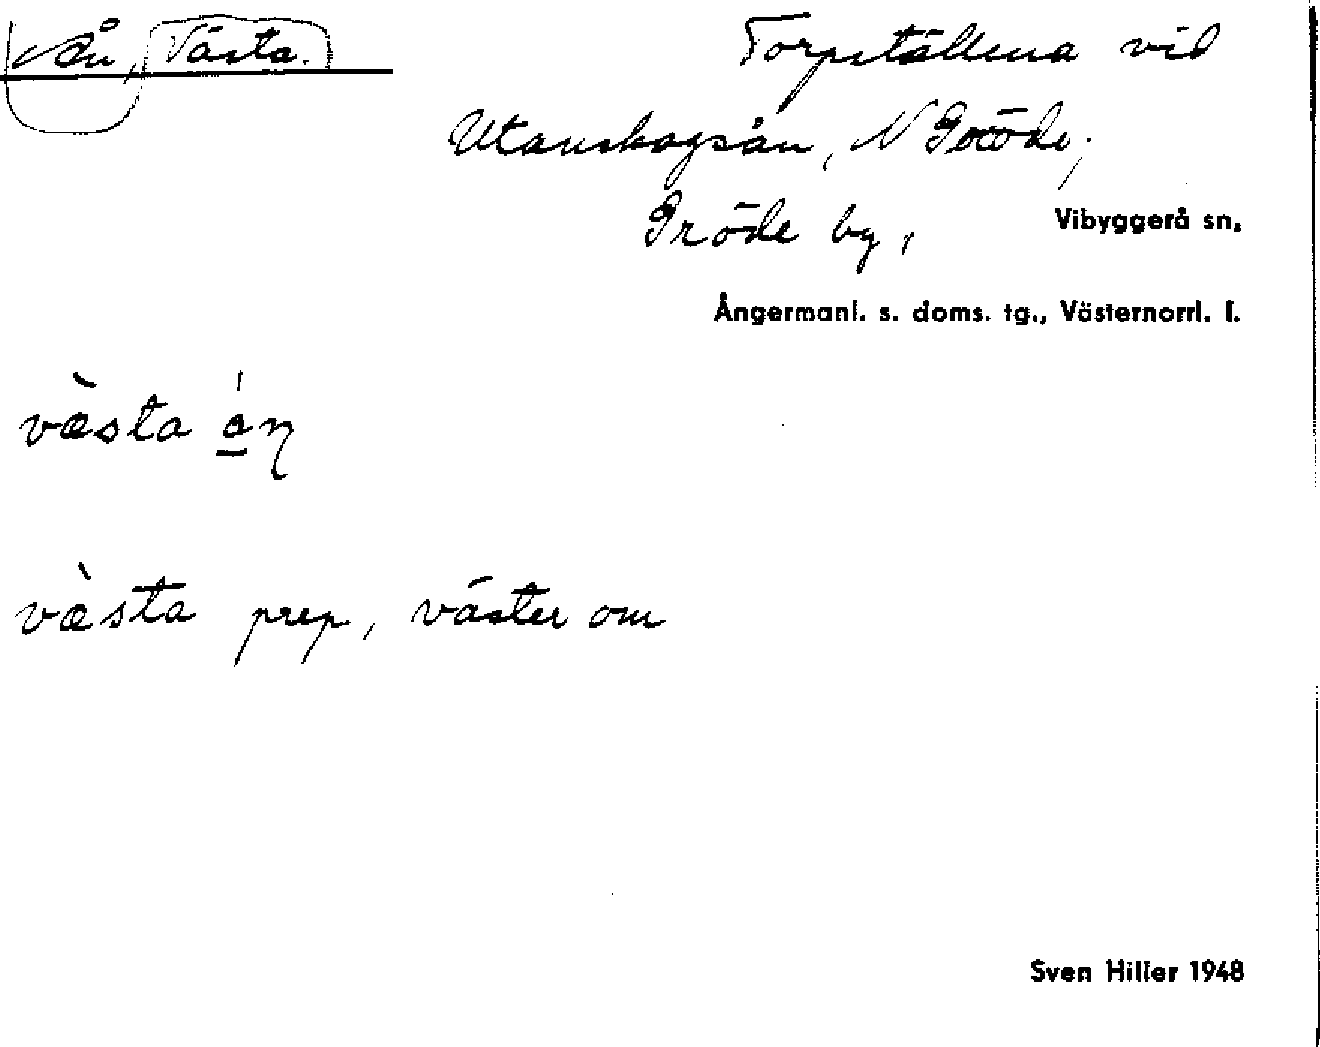 Ån, Västa.
Torpställena vid
Utanskogsån, N Gröde,
Gröde by,
Vibyggerå sn,
Ångermanl. s. doms. tg., Västernorrl. l.
vὰsta
vὰsta prep, väster om
Sven Hiller 1948